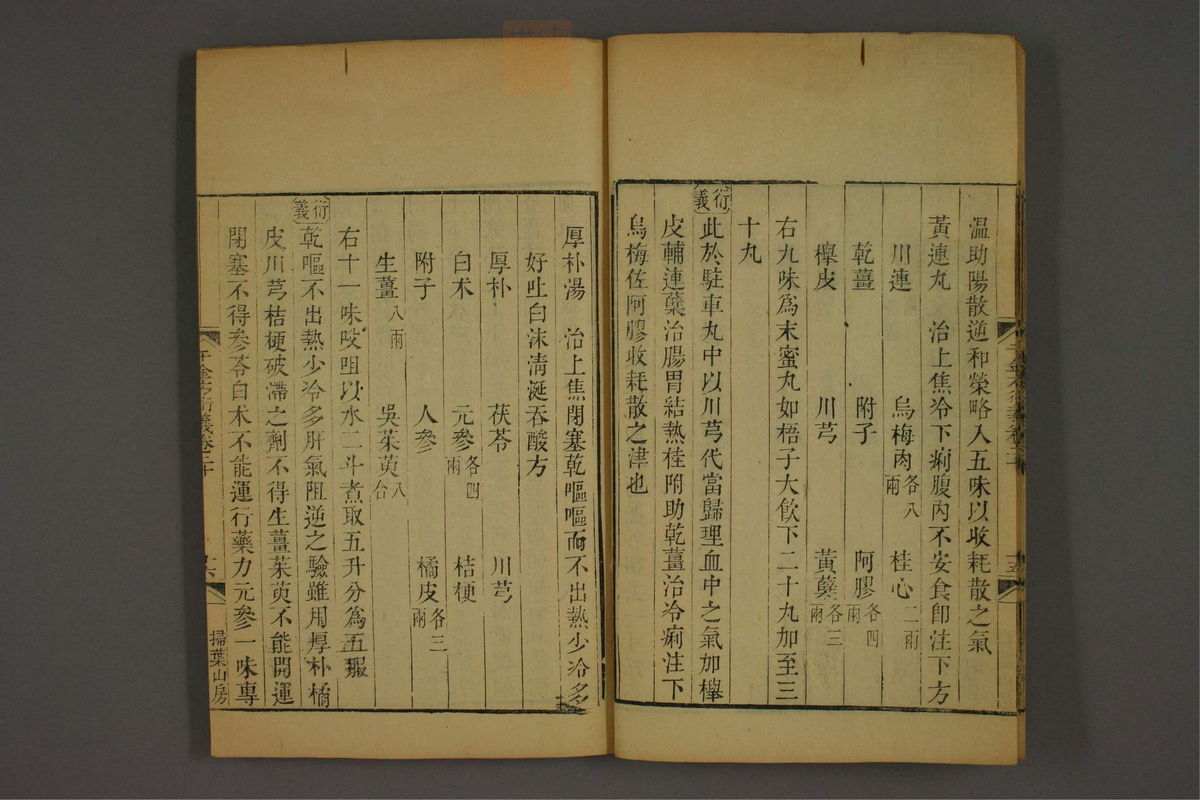 溫助陽散逆和榮略入五味以收耗散之氣
黃連丸　治上焦冷下痢腹內不安食即注下方
川連　烏梅肉各八兩　桂心二兩
乾薑　附子　阿膠各四兩
櫸皮　川芎　黃蘗各三兩
右九味為末蜜丸如梧子大飲下二十丸加至三
十丸
衍義
此於駐車丸中以川芎代當歸理血中之氣加櫸
皮輔連蘗治腸胃結熱桂附助乾薑治冷痢注下
烏梅佐阿膠收耗散之津也
厚朴湯　治上焦閉塞乾嘔嘔而不出熱少冷多
好吐白沫清涎吞酸方
厚朴　茯苓　川芎
白朮　元參各四兩　桔梗
附子　人參　橘皮各三兩
生薑八兩　吳茱萸八合
右十一味㕮咀以水二斗煮取五升分為五服
衍義
乾嘔不出熱少冷多肝氣阻逆之驗雖用厚朴橘
皮川芎桔梗破滯之劑不得生薑茱萸不能開運
閉塞不得參苓白朮不能運行藥力元參一味專
千金方衍義卷二十
掃葉山房